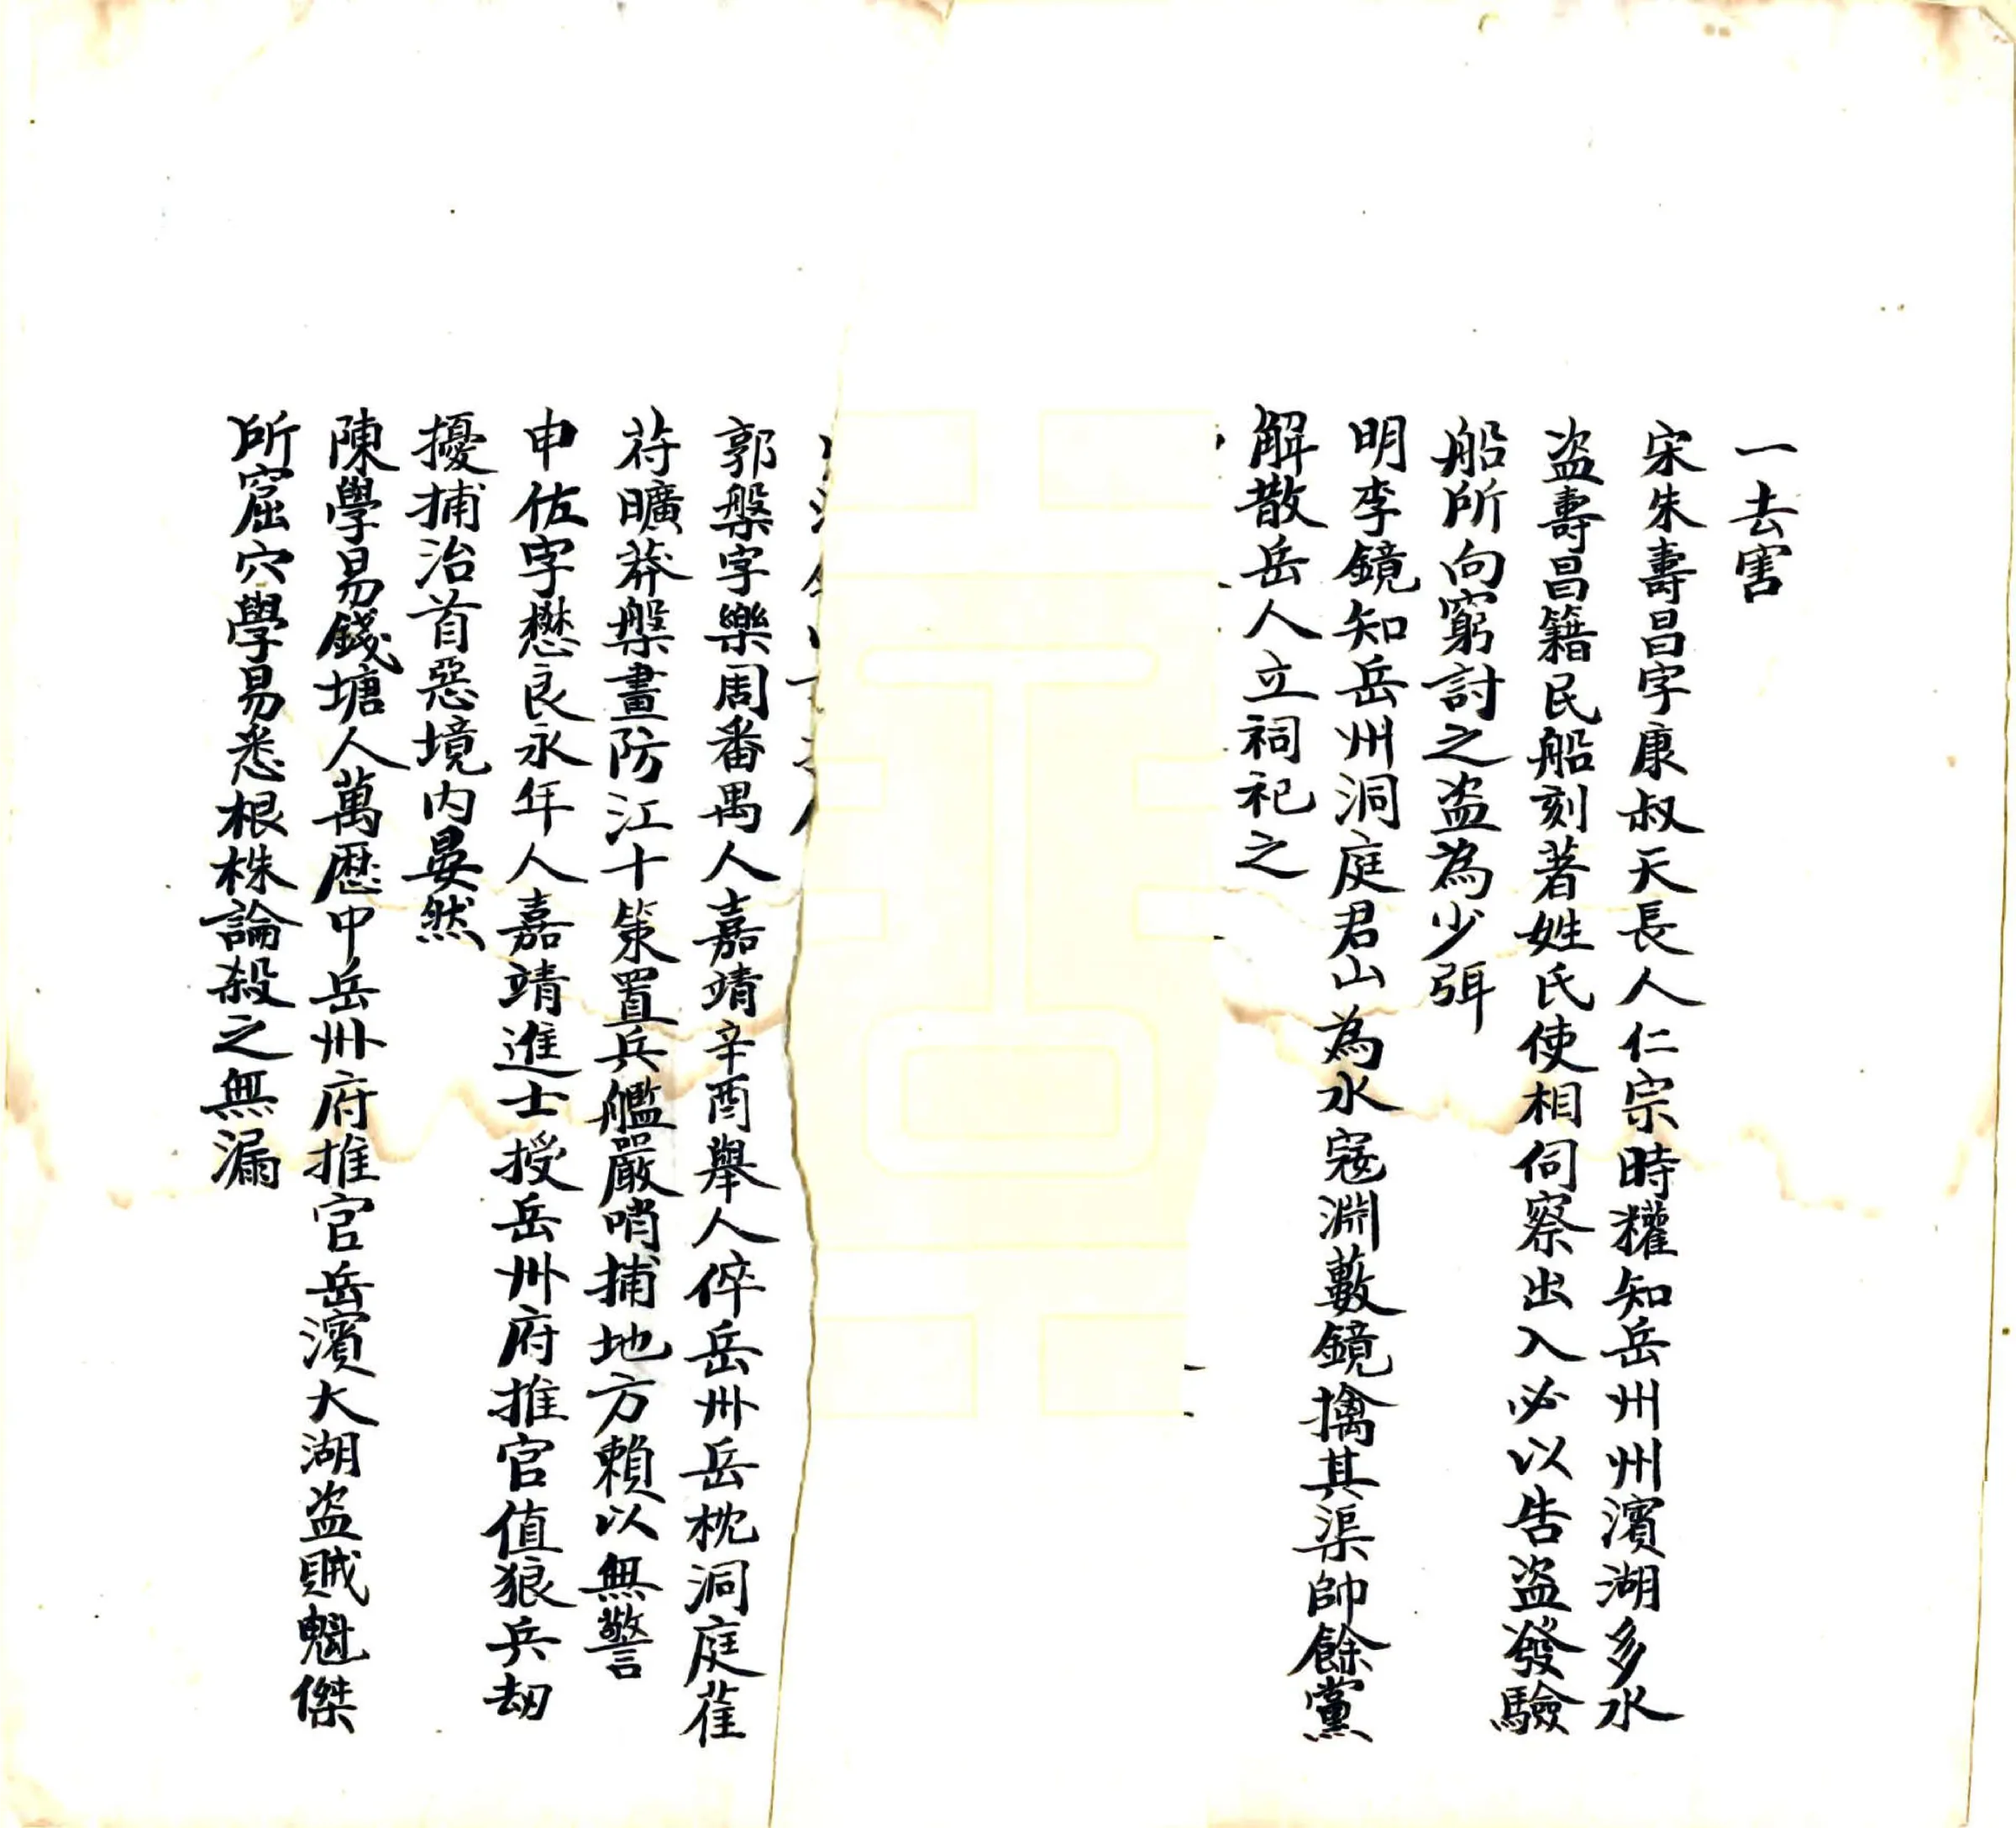 一去害
宋朱壽昌字康叔天長人仁宗時權知岳州州濱湖多水
盗壽昌籍民船刻著姓氏使相伺察出入必以告盗發驗
船所向窮討之盗為少弭
明李鏡知岳州洞庭君山為水寇淵藪鏡擒其渠帥餘黨
解散岳人立祠祀之
郭槃字樂周番禺人嘉靖辛酉舉人倅岳州岳枕洞庭萑
苻曠莽槃畫防江十策置兵艦嚴哨捕地方賴以無警
申佐字懋良永年人嘉靖進士授岳州府推官值狼兵刧
擾捕治首惡境内晏然
陳學易錢塘人萬歷中岳州府推官岳濱大湖盗賊魁傑
所窟穴學易悉根株論殺之無漏